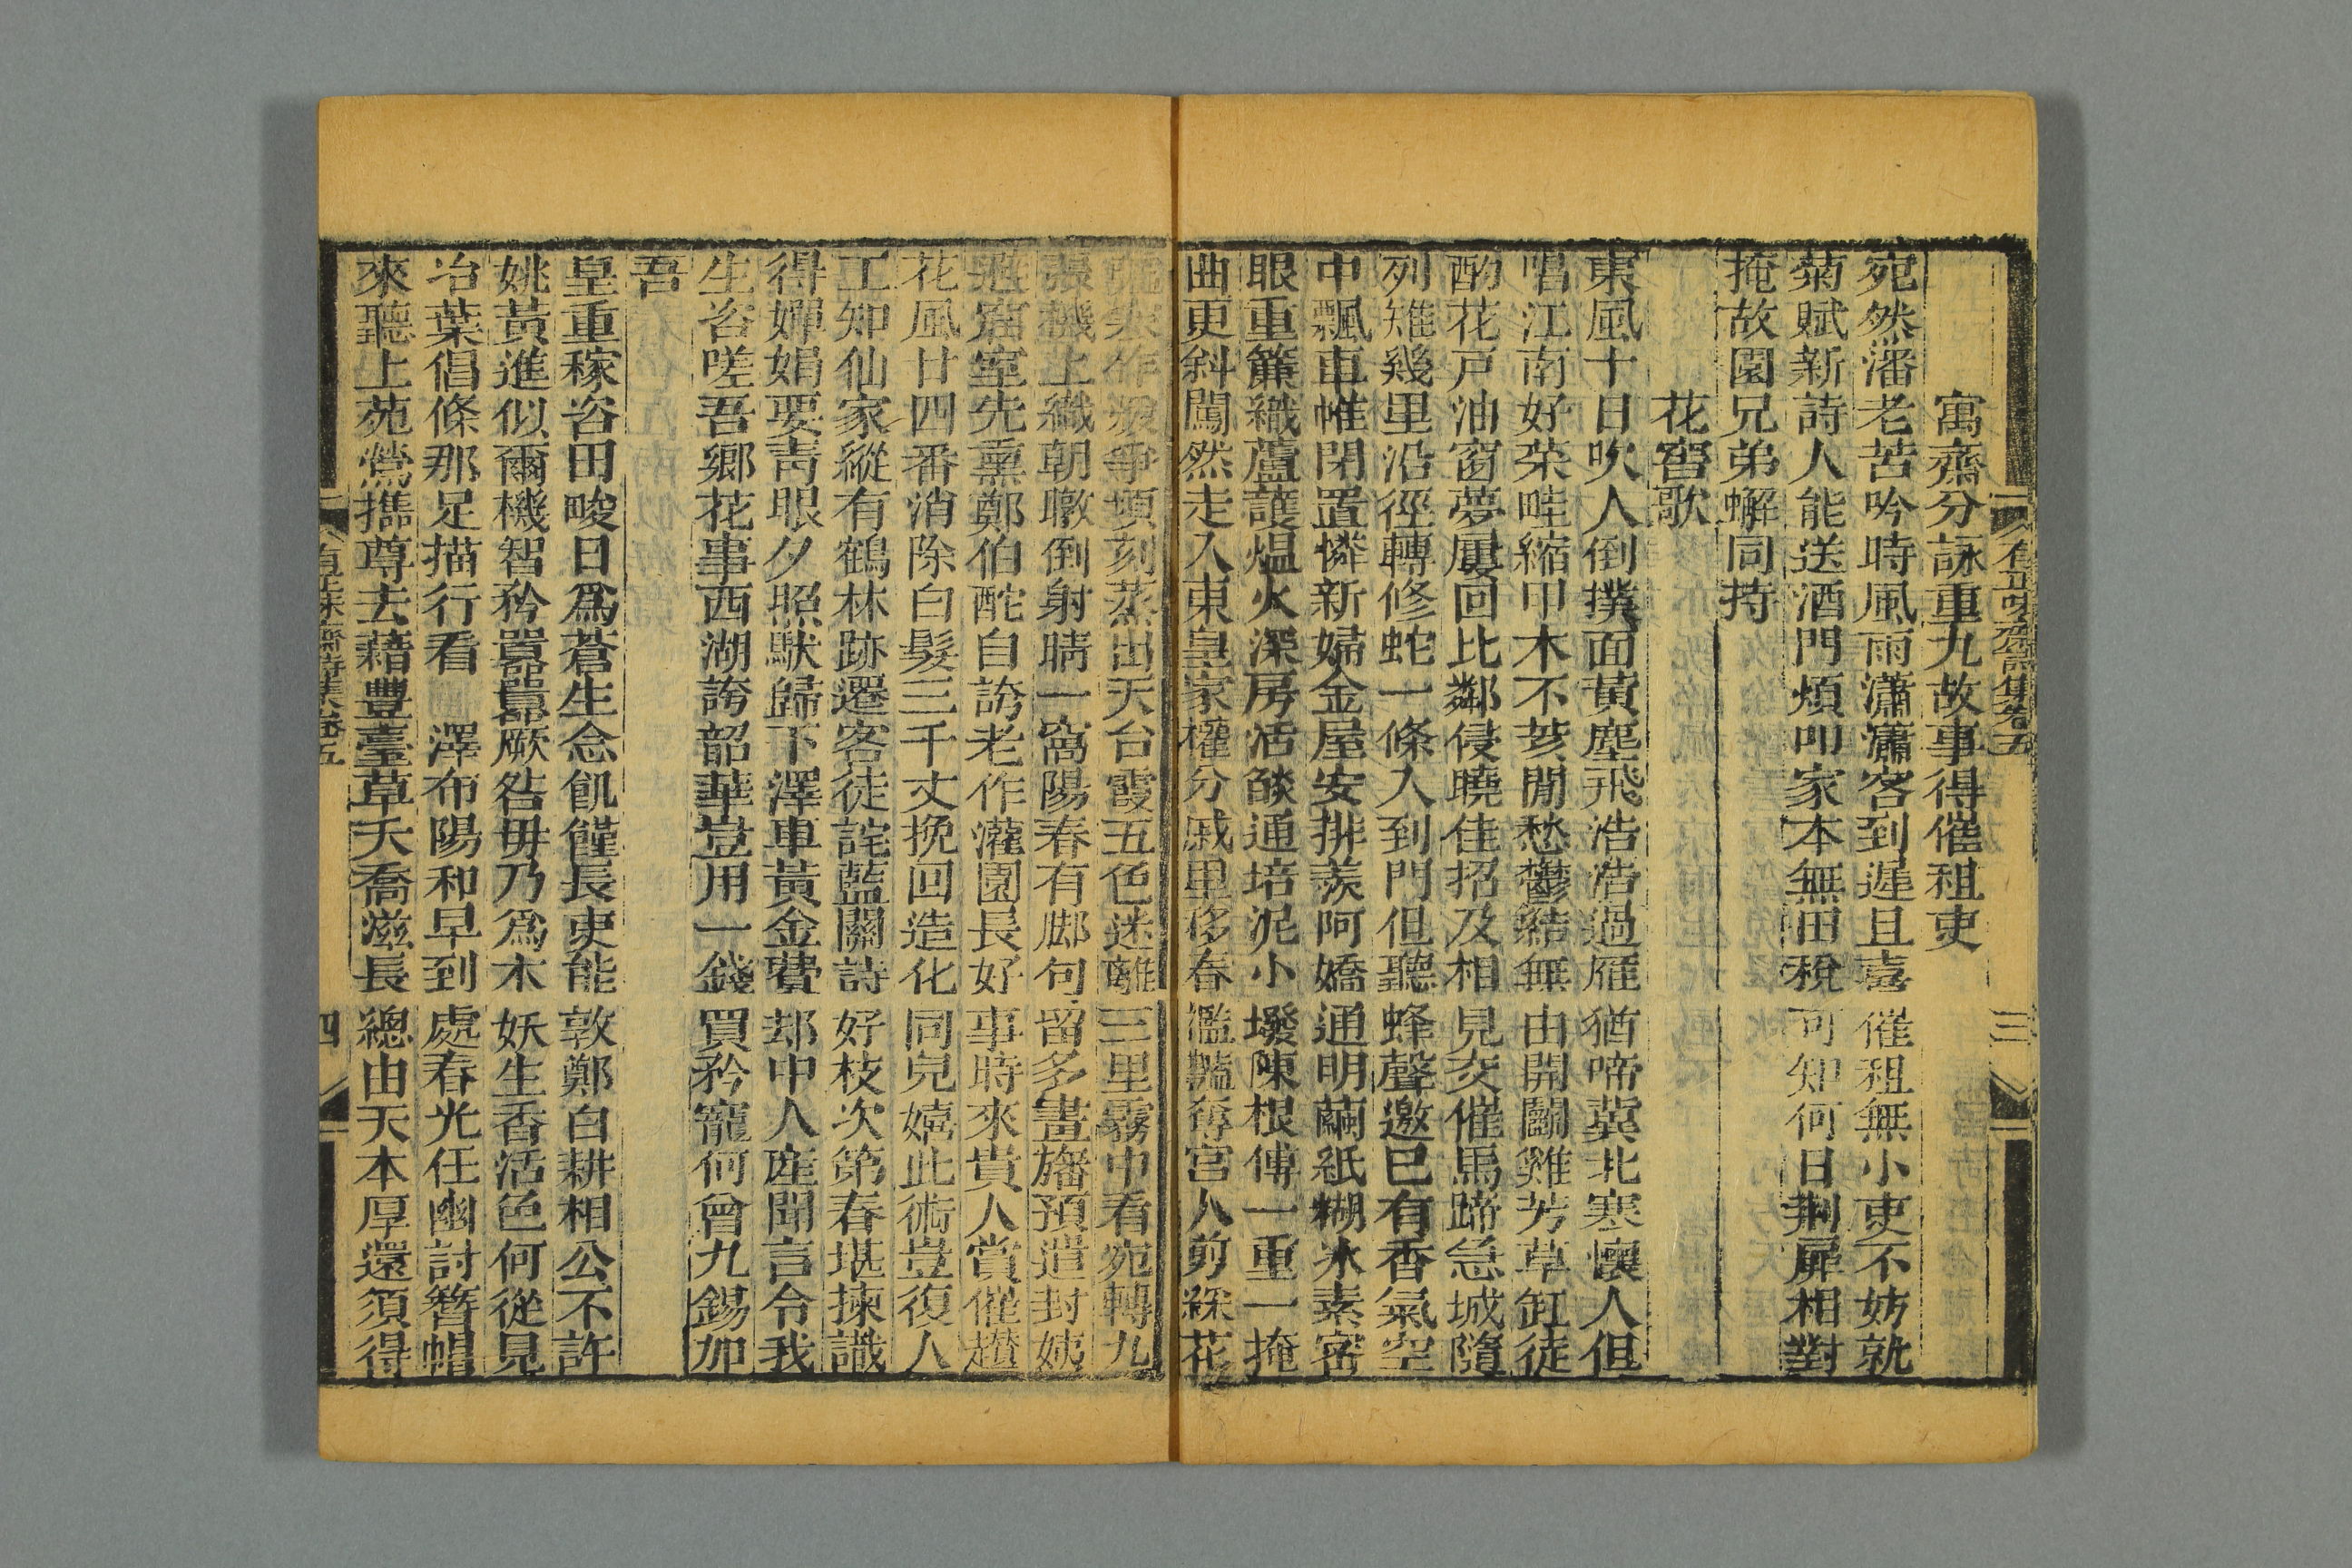 寓齋分詠重九故事得催租吏
宛然潘老苦吟時風雨瀟瀟客到遲且喜催租無小吏不妨就
菊賦新詩人能送酒門煩叩家本無田稅可知何日荆扉相對
掩故園兄弟蠏同持
花窖歌
東風十日吹人倒撲面黃塵飛浩浩過雁猶啼冀北寒懷人但
唱江南好菜畦縮甲木不荄閒愁鬱結無由開鬭雞芳草缸徒
酌花戸油窗夢屢回比鄰侵曉佳招及相見交催馬蹄急城隨
列雉幾里沿徑轉修蛇一條入到門但聽蜂聲邀已有香氣空
中飄車帷閉置憐新婦金屋安排羨阿嬌通明繭紙糊氷素密
眼重簾織蘆護煴火深房活燄通培泥小墢陳根傅一重一掩
曲更斜闖然走入東皇家權分戚里侈春濫豔奪宫人剪綵花
爭頃刻蒸出天台霞五色迷離三里霧中看宛轉九
張機上織朝暾倒射晴一窩陽春有脚句留多畫旛預遣封姨
避窟室先熏鄭伯酡自誇老作灌園長好事時來貴人賞催趲
花風廿四番消除白髮三千丈挽回造化同兒嬉此術豈復人
工知仙家縱有鶴林跡遷客徒詫藍關詩好枝次第春堪揀識
得嬋娟要靑眼夕照馱歸下澤車黃金費却中人産聞言令我
生咨嗟吾鄉花事西湖誇韶華豈用一錢買矜寵何曾九錫加
吾
皇重稼咨田畯日爲蒼生念飢饉長吏能敦鄭白耕相公不許
姚黃進似爾機智矜嚣嚣厥咎毋乃爲木妖生香活色何從見
冶葉倡條那足描行看　澤布陽和早到處春光任幽討簪帽
來聽上苑鶯携尊去藉豐臺草夭喬滋長總由天本厚還須得
有正味齋詩集卷五
三
有正味齋詩集卷五
四